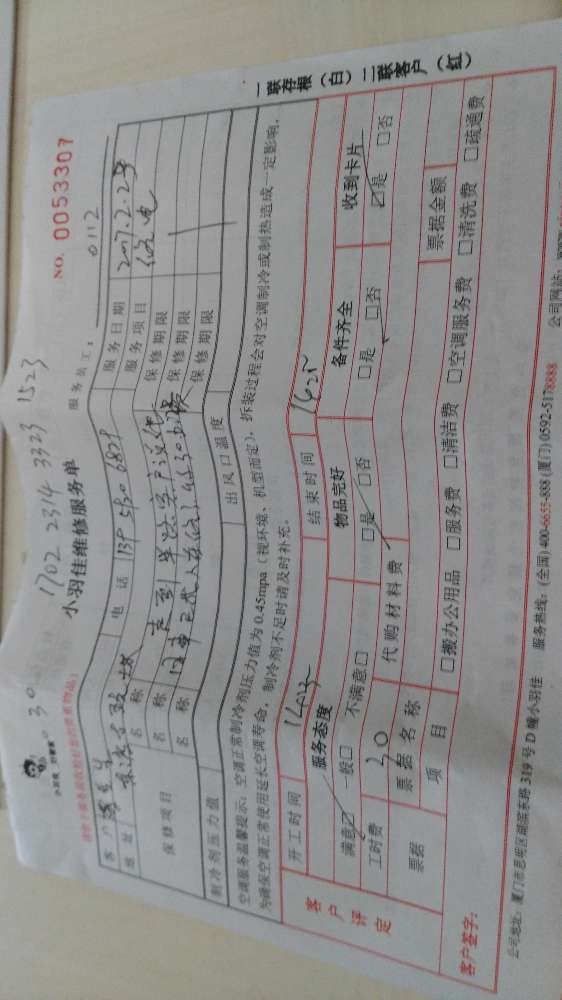 1702 2314 3323 1523
小羽佳维修服务单
NO. 0053307
服务员工: 0112
客户
电话 139 5930 6809
服务日期 2017.2.23
地址
服务项目 修电
保修项目
名称
保修期限
名称
保修期限
名称
保修期限
制冷剂压力值
出风口温度
空调服务温馨提示:空调正常制冷剂压力值为0.45mpa(视环境、机型而定),拆装过程会对空调制冷或制热造成一定影响,
为确保空调正常使用延长空调寿命,制冷剂不足时请及时补充。
客户评定
开工时间
结束时间 1425
服务态度
物品完好
备件齐全
收到卡片
满意☑ 一般□ 不满意□
□是 □否
□是 □否
☑是 □否
工时费 30
代购材料费
票据
票据名称
票据金额
项目
□搬办公用品 □服务费 □清洁费 □空调服务费 □清洗费 □疏通费
客户签字:
一联存根(白)二联客户(红)
公司地址:厦门市思明区湖滨东路319号D幢小羽佳
服务热线:(全国)400-6655-888(厦门)0592-5178888
公司网站: